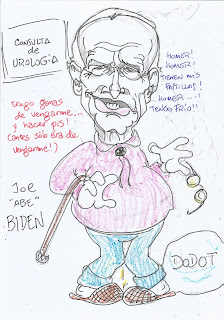 CONSULTA
DE
UROLOGÍA
HOMER!
HOMER!
TIENEN MIS
PASTILLAS!
HOMER...
TENGO FRÍO!!
TENGO GANAS
DE VENGARME...
Y HACER PIS!
(ANTES SÓLO ERA DE
VENGARME!)
JOE
"ABE"
BIDEN
DODOT